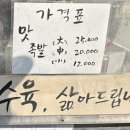 가격표
맛
족발 (大) 25,000
(中) 20,000
(小) 12,000
수육, 삶아드립니